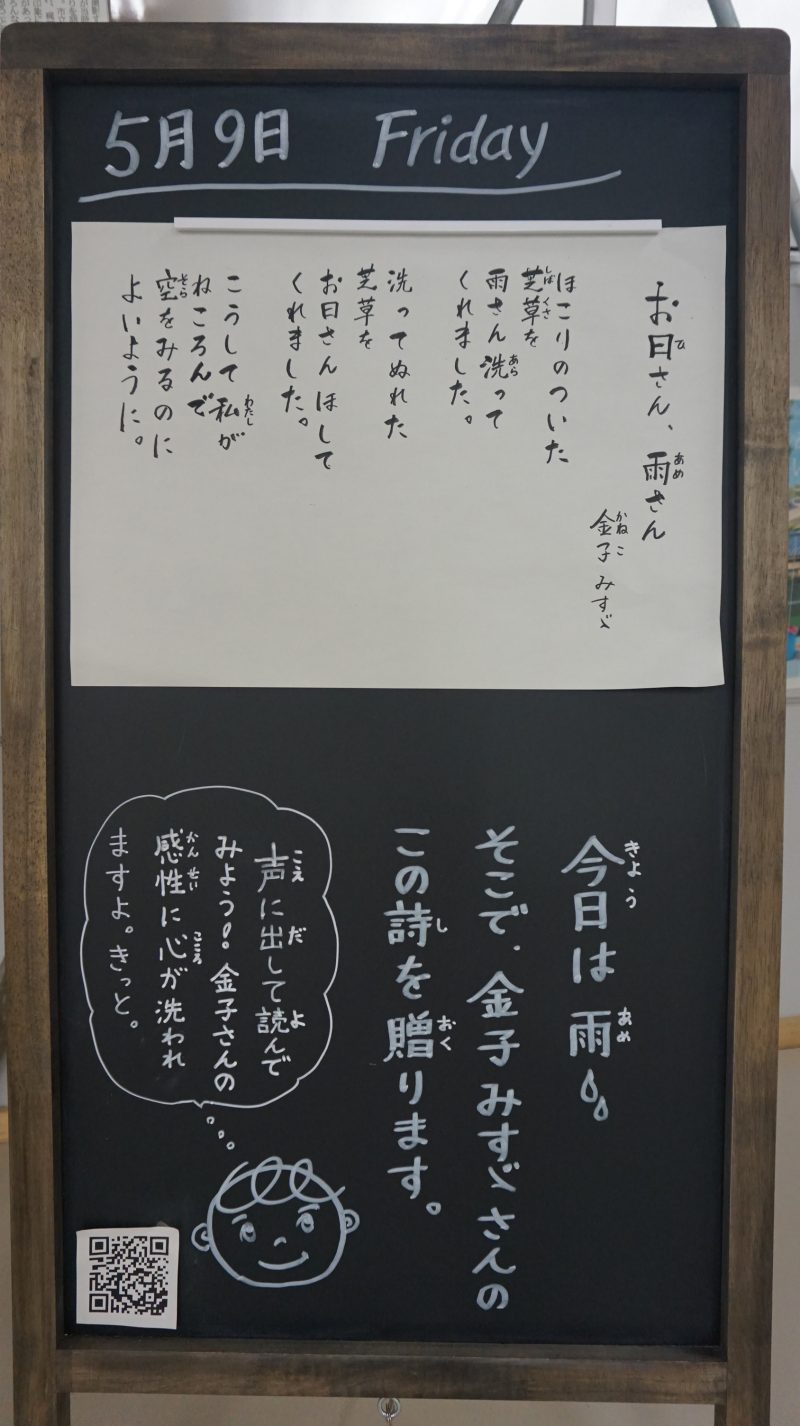 5月9日 Friday
お日さん、雨さん
金子 みすゞ
ほこりのついた
芝草を
雨さん洗って
くれました。
洗ってぬれた
芝草を
お日さんほして
くれました。
こうして私が
ねころんで
空をみるのに
よいように。
今日は雨
そこで、金子みすゞさんの
この詩を贈ります。
声に出して読んで
みよう!!金子さんの
感性に心が洗われ
ますよ。きっと。